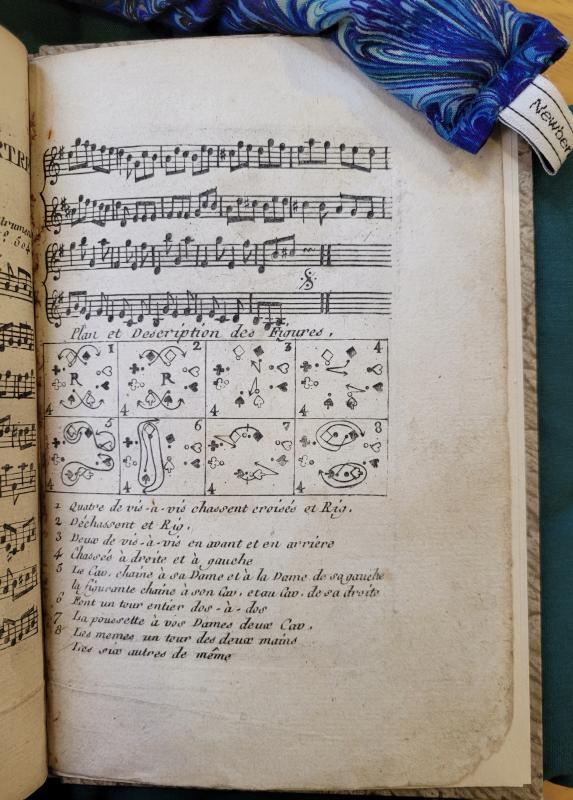 TRE
Newber
Plan et Description des Figures.
1 2 3 4
R R
4 4 4 4
5 6 7 8
4 4 4 4
1 Quatre de vis-à-vis chassent croisés et Rig.
2 Déchassent et Rig.
3 Deux de vis-à-vis en avant et en arrière
4 Chassés à droite et à gauche
5 Le Cav. chaine à sa Dame et à la Dame de sa gauche
la figurante chaine à son Cav. et au Cav. de sa droite
6 Font un tour entier dos-à-dos
7 La poussette à vos Dames deux Cav.
8 Les memes un tour des deux mains
Les six autres de même